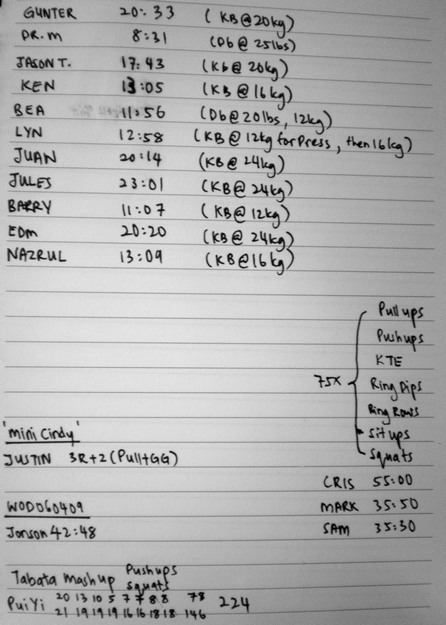 GUNTER 20:33 (KB@20kg)
DR.M 8:31 (Db@25lbs)
JASON T. 17:43 (Kb@20kg)
KEN 13:05 (KB@16kg)
BEA 11:56 (Db@20lbs, 12kg)
LYN 12:58 (KB@12kg for Press, then 16kg)
JUAN 20:14 (KB@24kg)
JULES 23:01 (KB@24kg)
BARRY 11:07 (KB@12kg)
EDM 20:20 (KB@24kg)
NAZRUL 13:09 (KB@16kg)
Pull ups
Pushups
KTE
75x Ring Dips
Ring Rows
Sit ups
Squats
'mini Cindy'
JUSTIN 3R+2 (Pull+GG)
CRIS 55:00
MARK 35:50
SAM 35:30
WOD060409
Jonson 42:48
Tabata mashup Pushups
Squats
Pui Yi 20 13 10 5 7 7 8 8 78 224
21 19 19 19 16 16 18 18 146